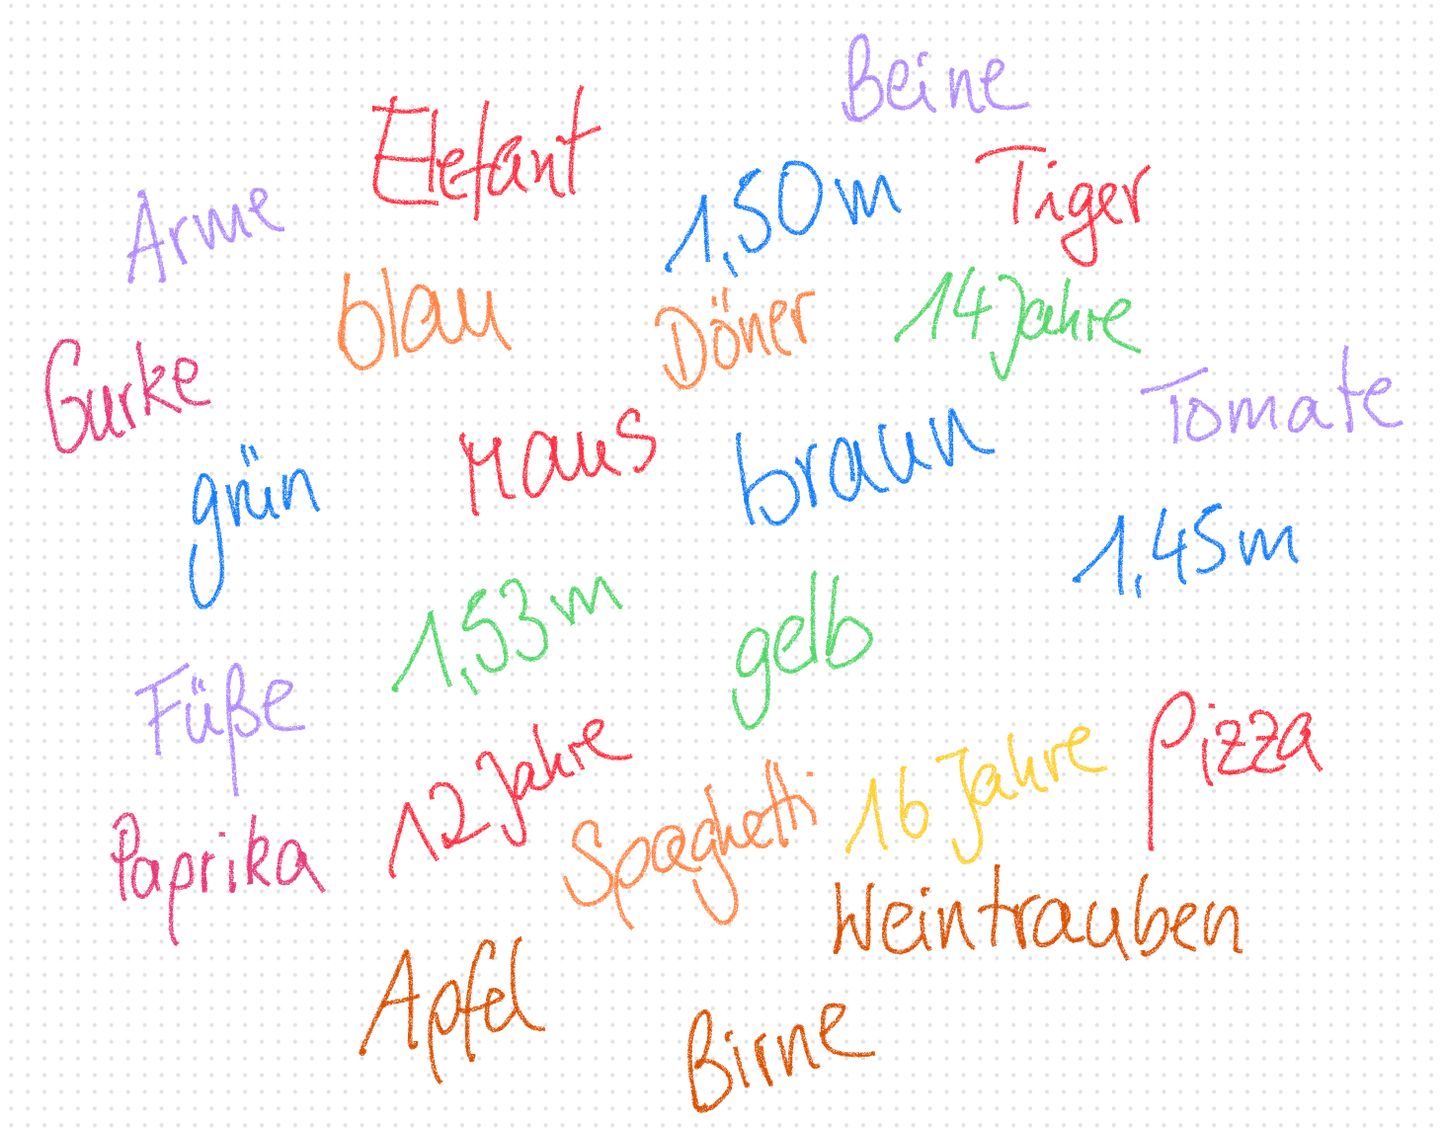 Beine
Elefant
Tiger
Arme
1,50m
blau
Döner
14 Jahre
Gurke
Tomate
Maus
braun
grün
1,45m
1,53m
gelb
Füße
12 Jahre
16 Jahre
Pizza
Paprika
Spaghetti
Weintrauben
Apfel
Birne